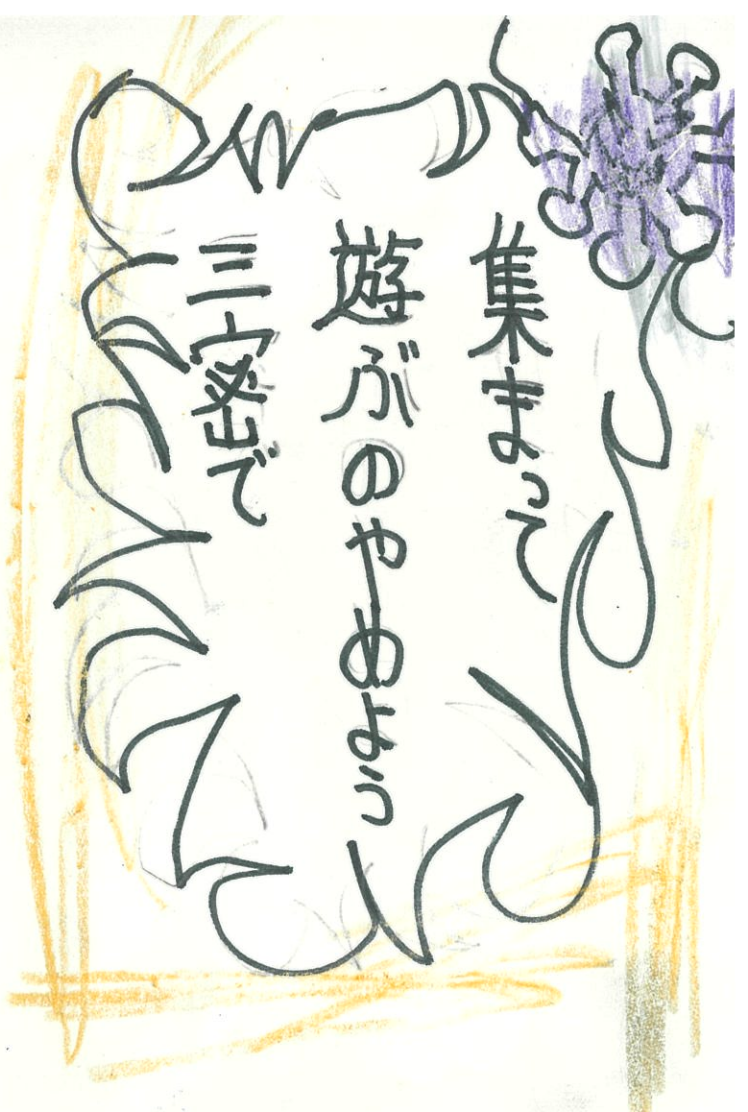 集まって
遊ぶのやめよう
三密で